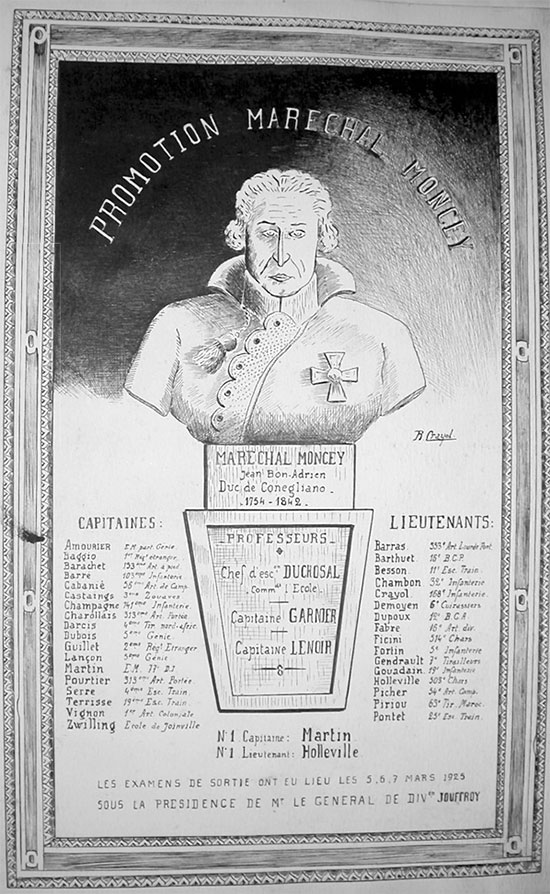 PROMOTION MARECHAL MONCEY
R Crayol
MARECHAL MONCEY
Jean Bon-Adrien
Duc de Conegliano.
-1754-1842-
PROFESSEURS
Chef d'esc^on DUCROSAL
Comm^dt l'Ecole
Capitaine GARNIER
Capitaine LENOIR
CAPITAINES:
Amourier E.M. part. Génie.
Baggio 1er Reg^t étranger.
Barachet 193ème Art. à pied
Barre 103ème Infanterie
Cabanié 56ème Art. de Camp.
Castaings 3ème Zouaves
Champagne Infanterie.
Charollais 313ème Art. Portée
Darcis 4ème Tir. nord-afric.
Dubois 5ème Génie.
Guillet 2ème Reg^t Etranger
Lançon 5ème Génie
Martin E.M.
Pourtier 313ème Art. Portée.
Serre 4ème Esc. Train.
Terrisse 19ème Esc. Train.
Vignon 1er Art. Coloniale
Zwilling Ecole de Joinville
LIEUTENANTS:
Barras 353e Art. Lourde Port.
Barthuet 16e B.C.P.
Besson 11e Esc. Train.
Chambon 32e Infanterie
Crayol 158e Infanterie.
Demoyen 6e Cuirassiers
Dupoux B.C.A
Fabre 16e Art. div.
Ficini 514e Chars
Fortin 5e Infanterie
Gendrault 7e Tirailleurs
Gouadain 19e Infanterie
Holleville 508e Chars
Picher 54e Art. Camp.
Piriou 63e Tir. Maroc.
Pontet 25e Esc. Train.
N°1 Capitaine: Martin
N°1 Lieutenant: Holleville.
LES EXAMENS DE SORTIE ONT EU LIEU LES 5,6,7 MARS 1925
SOUS LA PRESIDENCE DE M^r LE GENERAL DE DIV^on JOUFFROY